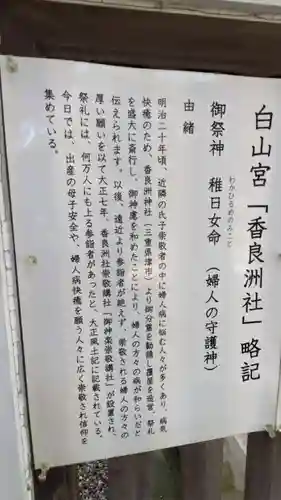 白山宮「香良洲社」略記
御祭神 稚日女命 (婦人の守護神)
わかひるめのみこと
由緒
明治二十年頃、近隣の氏子崇敬者の中に婦人病に悩む人々が多くあり、病気
快癒のため、香良洲神社(三重県津市)より御分霊を勧請し覆屋を造営、祭礼
を盛大に斎行し、御神慮を和めたことにより、婦人の方々の病が和らいだと
伝えられます。以後、遠近より参詣者が絶えず、崇敬される婦人の方々の
厚い願いを以て大正七年、香良洲社崇敬講社「御神楽崇敬講社」が設置され、
祭礼には、何万人にも上る参詣者があったと、大正風土記に記載されている。
今日では、出産の母子安全や、婦人病快癒を願う人々に広く崇敬され信仰を
集めている。